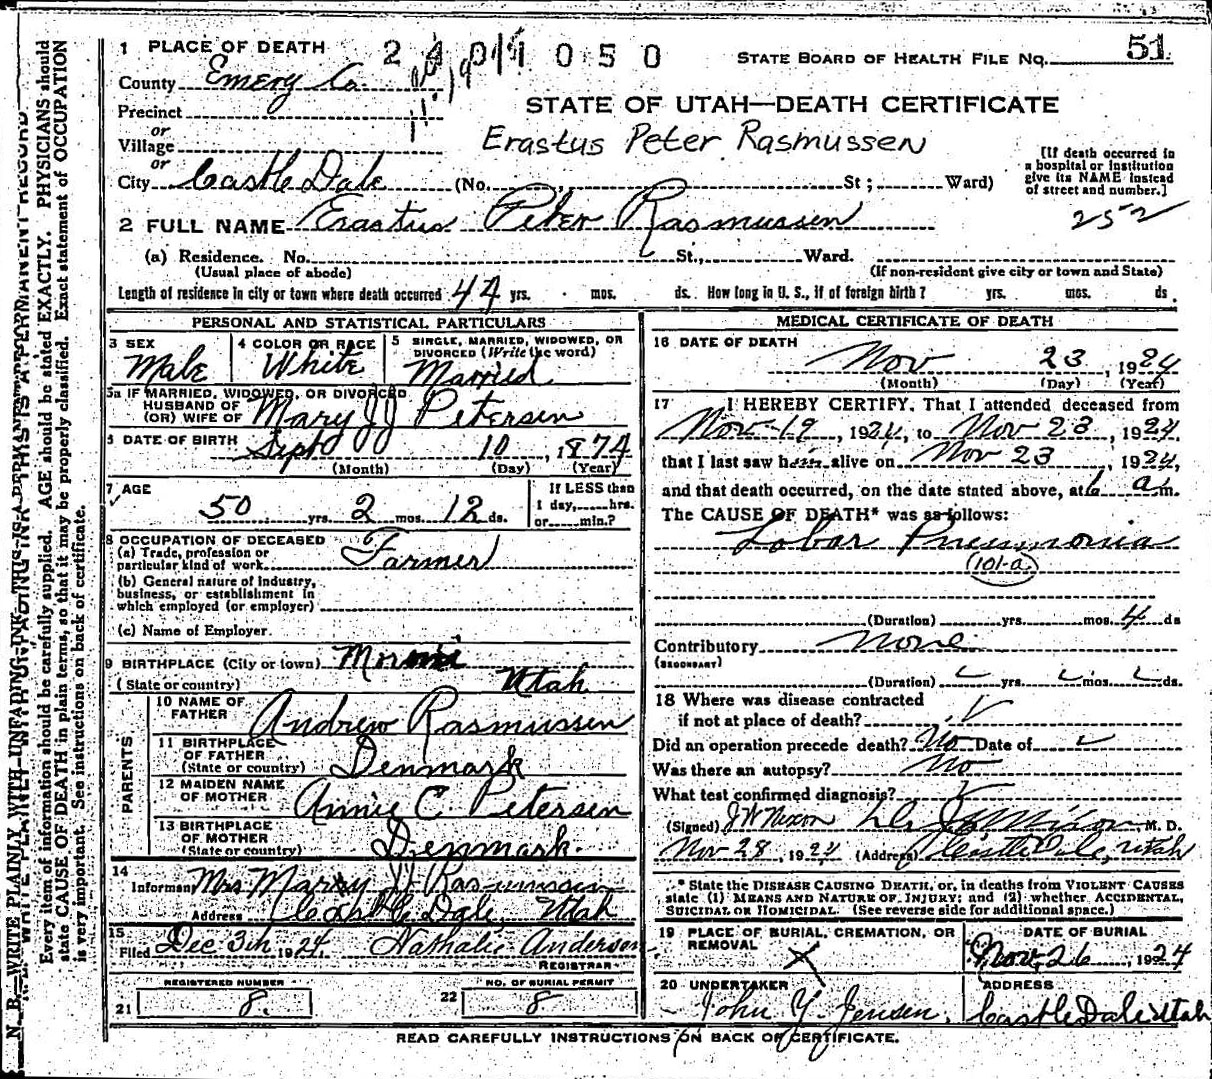 1 PLACE OF DEATH
2 4 0 1 1 0 5 0
STATE BOARD OF HEALTH FILE No. 51
County Emery Co.
STATE OF UTAH—DEATH CERTIFICATE
Precinct
or
Village
Erastus Peter Rasmussen
or
City Castle Dale (No. St; Ward)
[If death occurred in
a hospital or institution
give its NAME instead
of street and number.]
252
2 FULL NAME Erastus Peter Rasmussen
(a) Residence. No. St., Ward.
(Usual place of abode)
(If non-resident give city or town and State)
Length of residence in city or town where death occurred 44 yrs. mos. ds. How long in U. S., if of foreign birth? yrs. mos. ds.
PERSONAL AND STATISTICAL PARTICULARS
3 SEX
Male
4 COLOR OR RACE
White
5 SINGLE, MARRIED, WIDOWED, OR
DIVORCED (Write the word)
Married
5a IF MARRIED, WIDOWED, OR DIVORCED
HUSBAND OF
(OR) WIFE OF Mary JJ Petersen
6 DATE OF BIRTH
Sept 10, 1874
(Month) (Day) (Year)
7 AGE
50 yrs. 2 mos. 12 ds.
If LESS than
1 day, hrs.
or min.?
8 OCCUPATION OF DECEASED
(a) Trade, profession or
particular kind of work Farmer
(b) General nature of industry,
business, or establishment in
which employed (or employer)
(c) Name of Employer
9 BIRTHPLACE (City or town)
(State or country) Utah
PARENTS
10 NAME OF
FATHER Andrew Rasmussen
11 BIRTHPLACE
OF FATHER
(State or country) Denmark
12 MAIDEN NAME
OF MOTHER Annie C Petersen
13 BIRTHPLACE
OF MOTHER
(State or country) Denmark.
14
Informant Mrs Mary JJ Rasmussen
Address Castle Dale, Utah
15
Filed Dec 3th 1924, Nathalie Anderson
REGISTRAR
REGISTERED NUMBER
21 8.
NO. OF BURIAL PERMIT
22 8
MEDICAL CERTIFICATE OF DEATH
16 DATE OF DEATH
Nov 23, 1924
(Month) (Day) (Year)
17 I HEREBY CERTIFY, That I attended deceased from
Nov-19, 1924, to Nov 23, 1924
that I last saw him alive on Nov 23, 1924,
and that death occurred, on the date stated above, at 6 a m.
The CAUSE OF DEATH* was as follows:
Lobar Pneumonia
(101-a)
(Duration) yrs. mos. 4 ds
Contributory None
(SECONDARY)
(Duration) yrs. mos. ds.
18 Where was disease contracted
if not at place of death?
Did an operation precede death? No Date of
Was there an autopsy? No
What test confirmed diagnosis?
(Signed) J W Nixon M. D.
Nov 28, 1924 (Address) Castle Dale, Utah
* State the DISEASE CAUSING DEATH, or, in deaths from VIOLENT CAUSES
state (1) MEANS AND NATURE OF INJURY; and (2) whether ACCIDENTAL,
SUICIDAL OR HOMICIDAL. (See reverse side for additional space.)
19 PLACE OF BURIAL, CREMATION, OR
REMOVAL X
DATE OF BURIAL
Nov. 26, 1924
20 UNDERTAKER
John Y. Jensen.
ADDRESS
Castle Dale Utah
READ CAREFULLY INSTRUCTIONS ON BACK OF CERTIFICATE.
N. B. WRITE PLAINLY WITH UNFADING INK
Every item of information should be carefully supplied. AGE should be stated EXACTLY. PHYSICIANS should
state CAUSE OF DEATH in plain terms, so that it may be properly classified. Exact statement of OCCUPATION
is very important. See instructions on back of certificate.